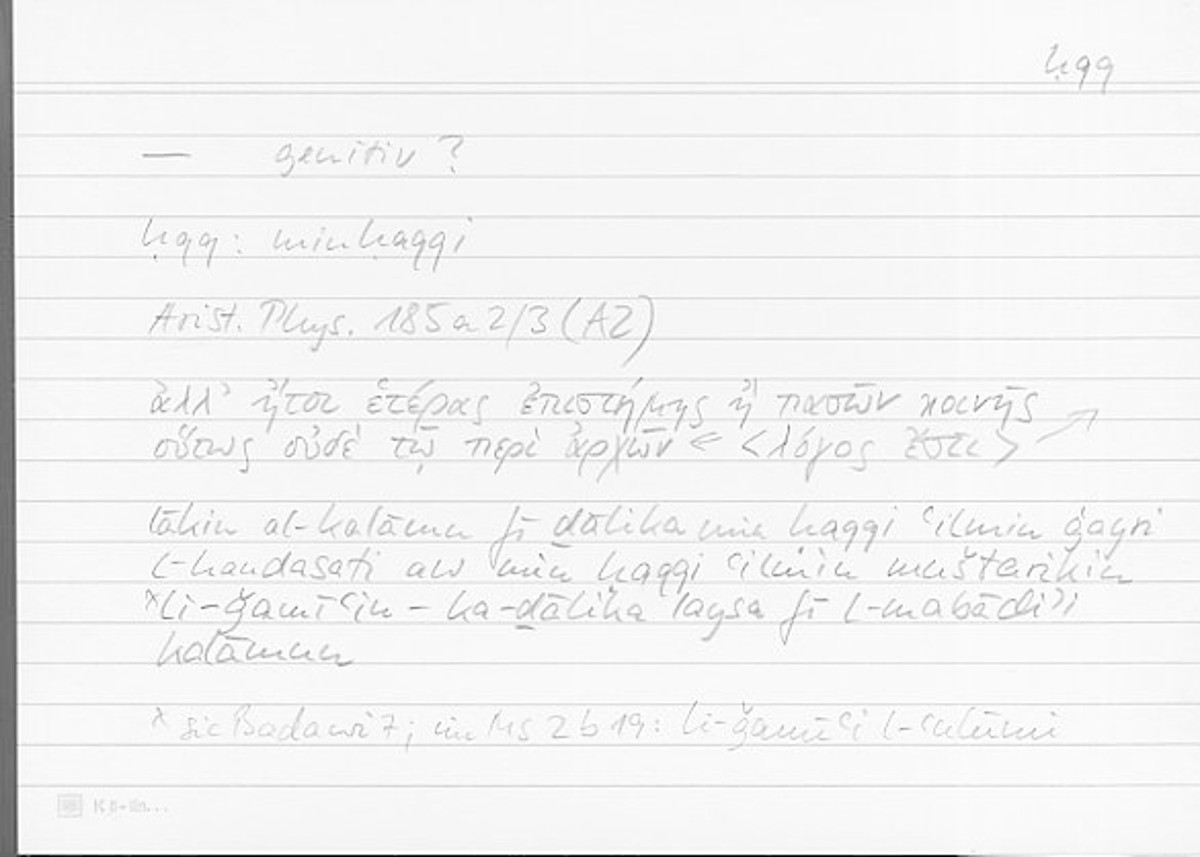 ḥqq
— genitiv ?
ḥqq: min ḥaqqi
Arist. Phys. 185 a 2/3 (A2)
ἀλλ' ἤτοι ἑτέρας ἐπιστήμης ἢ πασῶν κοινῆς
οὕτως οὐδὲ τῷ περὶ ἀρχῶν ← <λόγος ἔστι>
lākin al-kalāmu fī ḏālika min ḥaqqi ʿilmin ġayri
l-handasati aw min ḥaqqi ʿilmin muštarikin
×li-ǧamīʿin – ka-ḏālika laysa fī l-mabādiʾi
kalāmun
× sic Badawi 7; im Ms 2 b 19: li-ǧamīʿi l-ʿulūmi